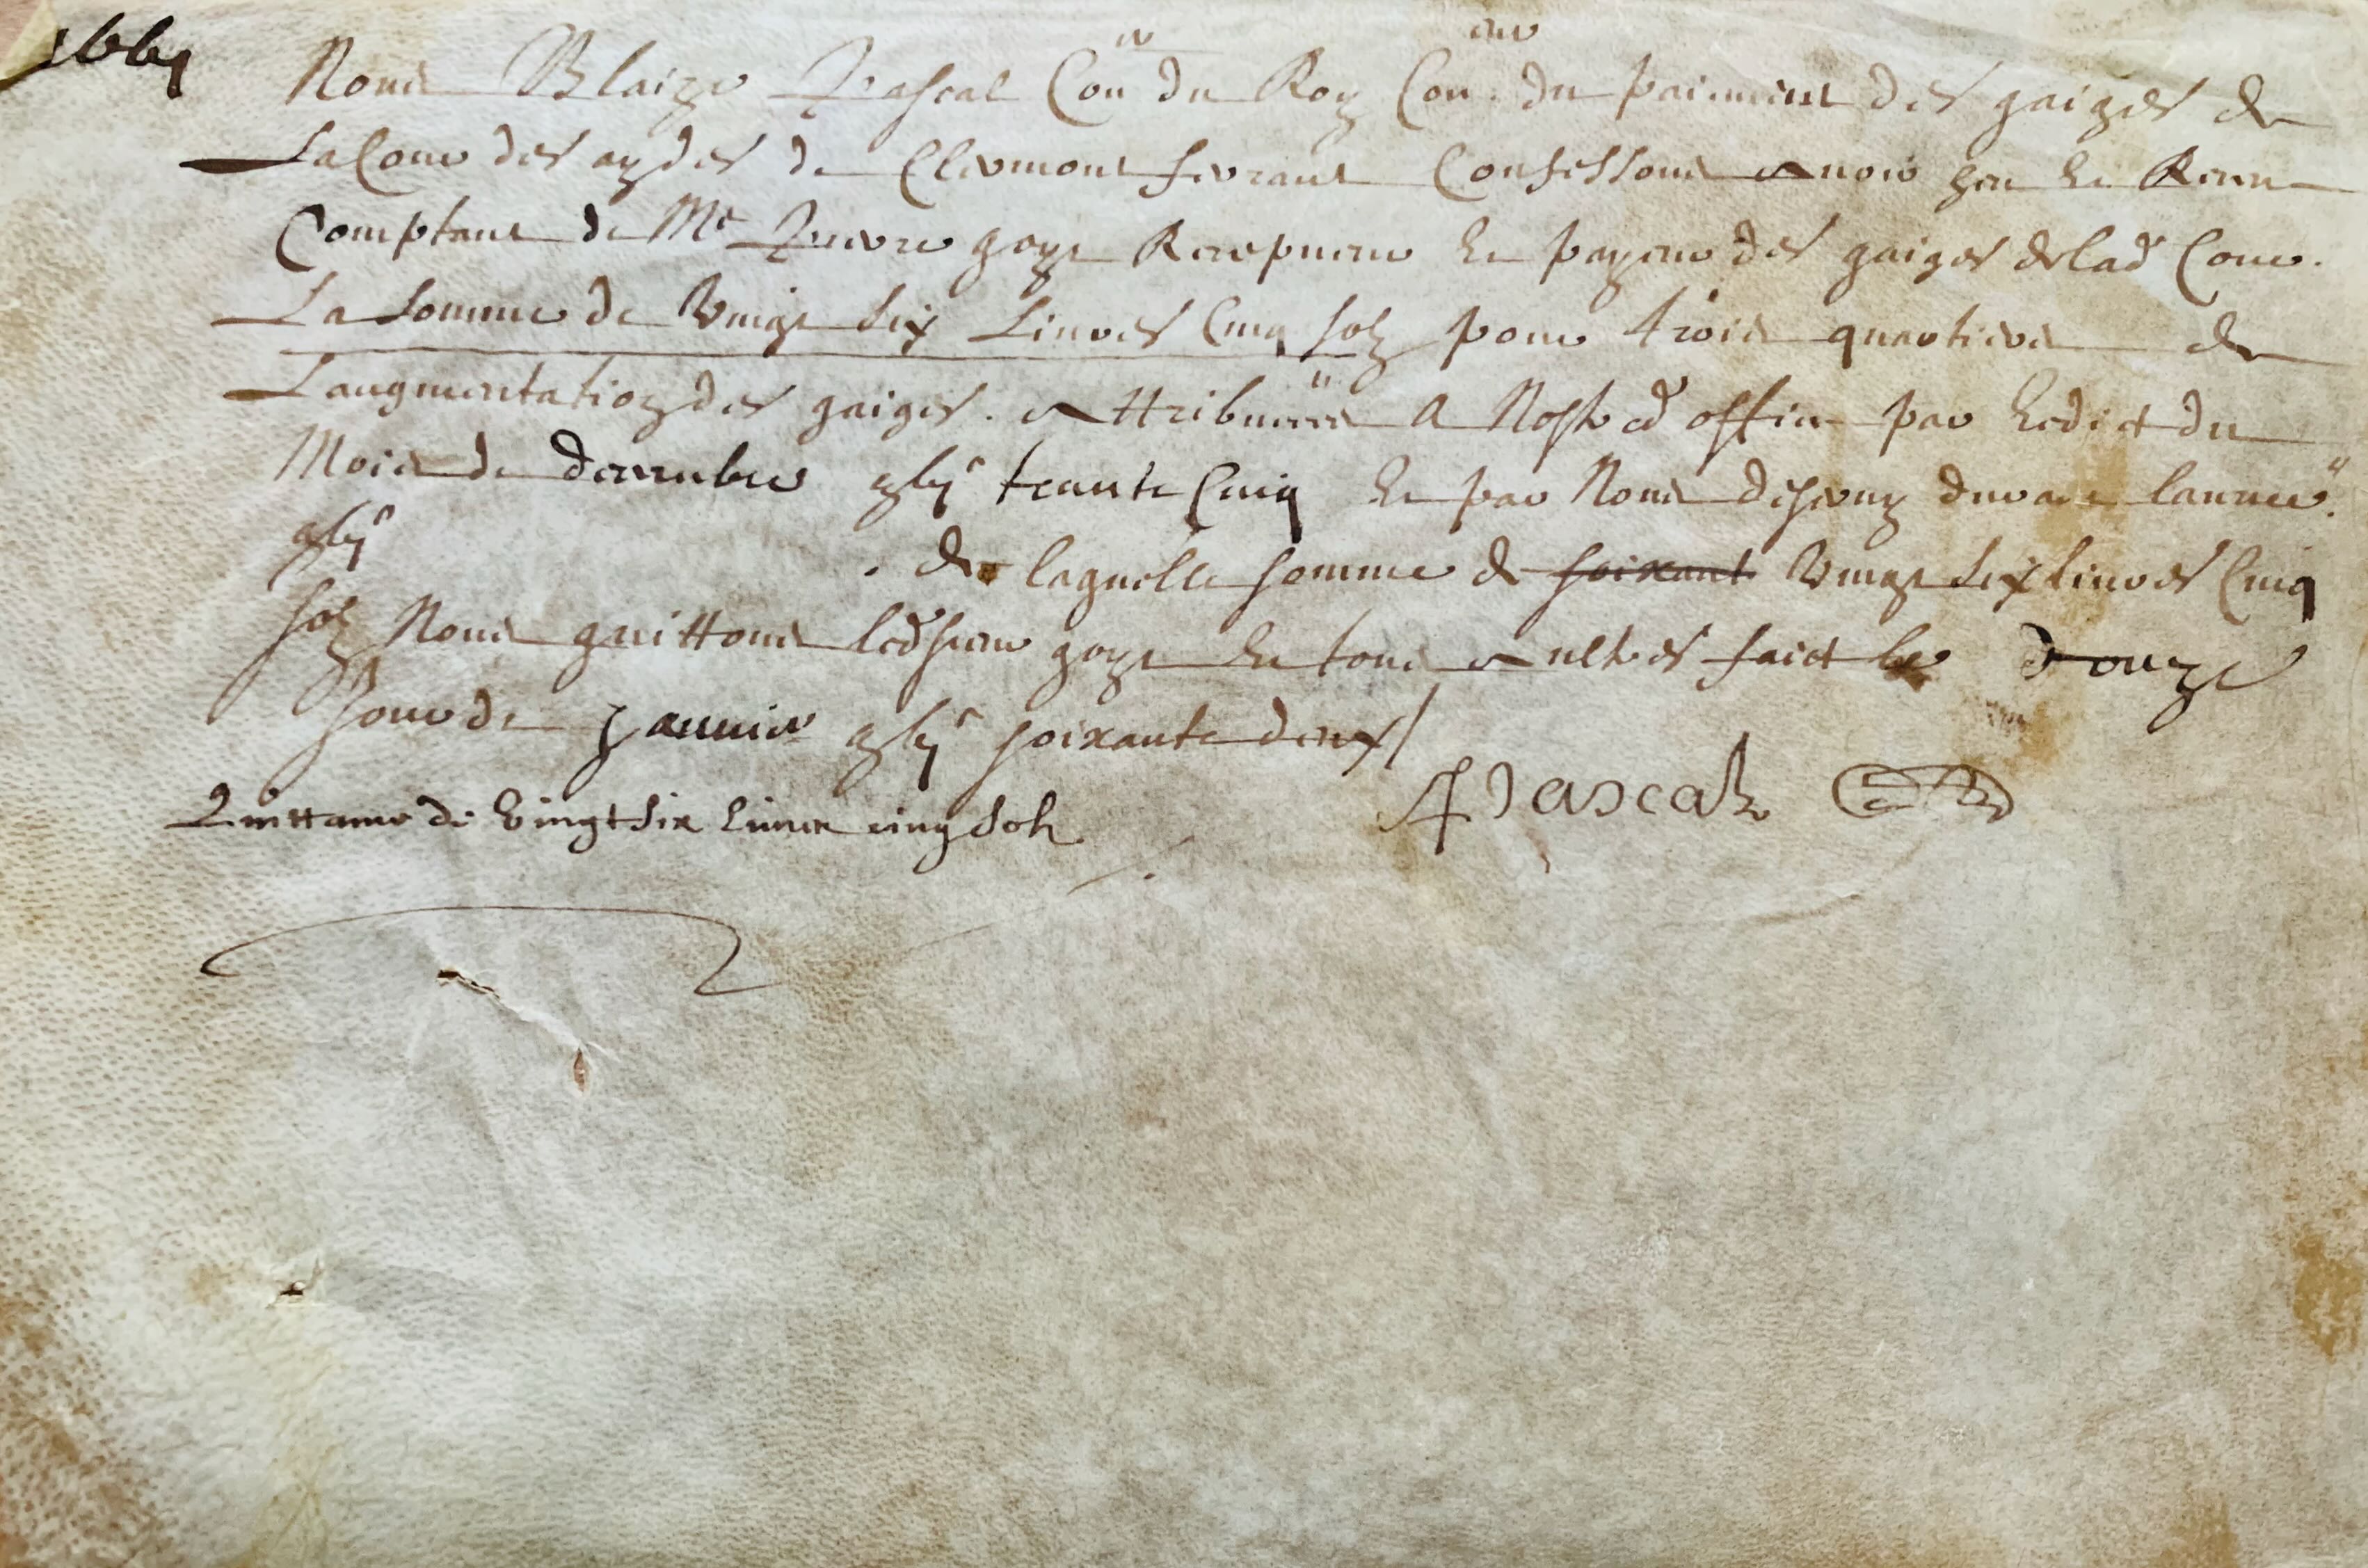 1661
Nous Blaize Pascal Con er du Roy Con eur du paiement des gaiges de
La Cour des aydes de Clermont ferrant Confessons avoir heu Et Receu
Comptant de Me Pierre goyt Recepveur Et payeur des gaiges de lad Cour.
La somme de Vingt six Livres Cinq solz pour trois quartiers de
Laugmentation des gaiges. Attribuées A Nostred office par Eedict du
Mois de decembre gbjc trente Cinq Et par Nous desservy durant lannee
gbjc . de laquelle somme de soixant Vingt six Livres Cinq
solz Nous quittons led sieur goyt Et tous aultres faict le douze
Jour de Janvier gbjc soixante deux /
Pascal
Quittance de Vingt six Livres cinq solz